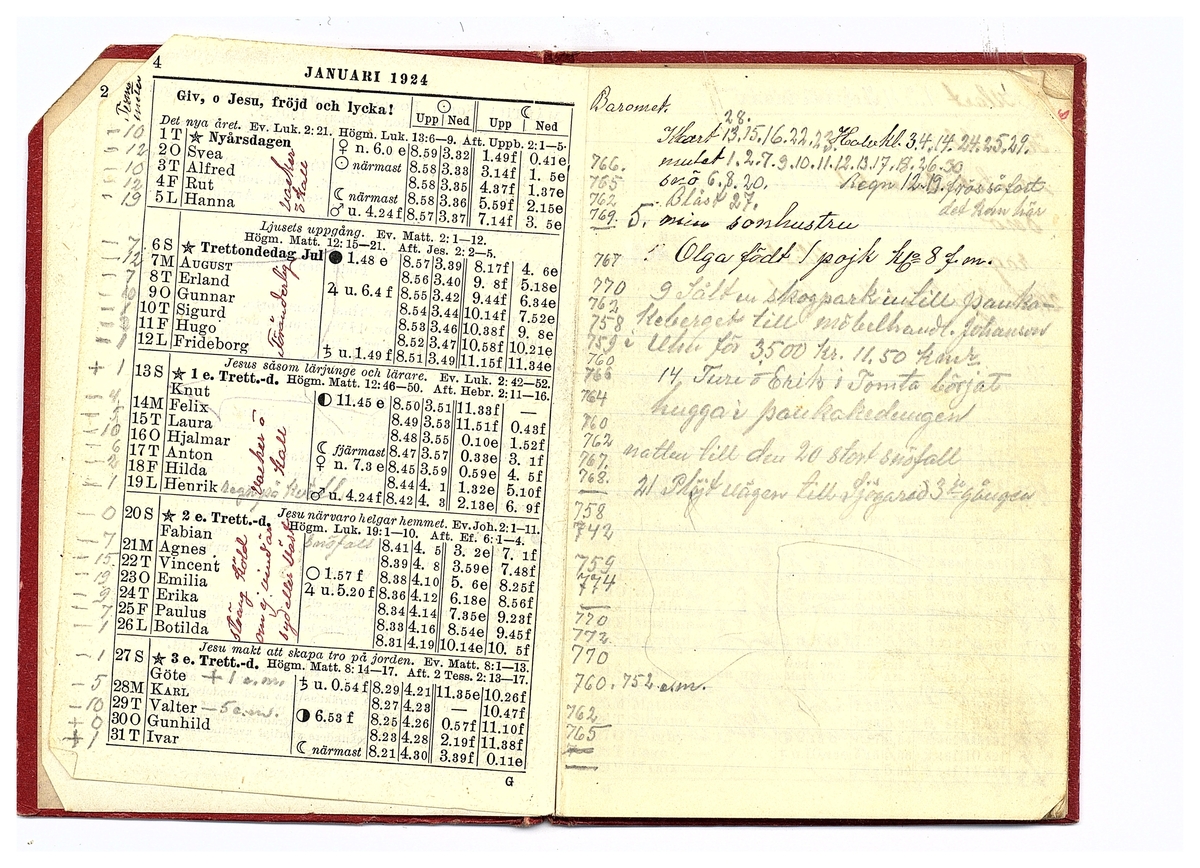 4
JANUARI 1924
2
Giv, o Jesu, fröjd och lycka!
Upp Ned Upp Ned
Det nya året. Ev. Luk. 2:21. Högm. Luk. 13:6–9. Aft. Uppb. 2:1–5.
1 T ★ Nyårsdagen ♀ n. 6.0 e 8.59 3.32 1.49f 0.41e
2 O Svea ☉ närmast 8.58 3.33 3.14f 1. 5e
3 T Alfred 8.58 3.35 4.37f 1.37e
4 F Rut ☾ närmast 8.58 3.36 5.59f 2.15e
5 L Hanna ♂ u. 4.24 f 8.57 3.37 7.14f 3. 5e
vacker
Ljusets uppgång. Ev. Matt. 2:1–12.
Högm. Matt. 12:15–21. Aft. Jes. 2:2–5.
6 S ★ Trettondedag Jul ● 1.48 e 8.57 3.39 8.17f 4. 6e
7 M AUGUST 8.56 3.40 9. 8f 5.18e
8 T Erland ♃ u. 6.4 f 8.55 3.42 9.44f 6.34e
9 O Gunnar 8.54 3.44 10.14f 7.52e
10 T Sigurd 8.53 3.46 10.38f 9. 8e
11 F Hugo 8.52 3.47 10.58f 10.21e
12 L Frideborg ♄ u. 1.49 f 8.51 3.49 11.15f 11.34e
föränderlig
Jesus såsom lärjunge och lärare. Ev. Luk. 2:42–52.
13 S ★ 1 e. Trett.-d. Högm. Matt. 12:46–50. Aft. Hebr. 2:11–16.
Knut ◐ 11.45 e 8.50 3.51 11.33f —
14 M Felix 8.49 3.53 11.51f 0.43f
15 T Laura 8.48 3.55 0.10e 1.52f
16 O Hjalmar ☾ fjärmast 8.47 3.57 0.33e 3. 1f
17 T Anton ♀ n. 7.3 e 8.45 3.59 0.59e 4. 5f
18 F Hilda 8.44 4. 1 1.32e 5.10f
19 L Henrik ♂ u. 4.24 f 8.42 4. 3 2.13e 6. 9f
vacker o kall
Jesu närvaro helgar hemmet. Ev. Joh. 2:1–11.
20 S ★ 2 e. Trett.-d. Högm. Luk. 19:1–10. Aft. Ef. 6:1–4.
Fabian snöfall 8.41 4. 5 3. 2e 7. 1f
21 M Agnes 8.39 4. 8 3.59e 7.48f
22 T Vincent ○ 1.57 f 8.38 4.10 5. 6e 8.25f
23 O Emilia ♃ u. 5.20 f 8.36 4.12 6.18e 8.56f
24 T Erika 8.34 4.14 7.35e 9.23f
25 F Paulus 8.33 4.16 8.54e 9.45f
26 L Botilda 8.31 4.19 10.14e 10. 5f
sträng köld
om ej vind är
syd eller väst
Jesu makt att skapa tro på jorden. Ev. Matt. 8:1–13.
27 S ★ 3 e. Trett.-d. Högm. Matt. 8:14–17. Aft. 2 Tess. 2:13–17.
Göte + 1 e.m. ♄ u. 0.54 f 8.29 4.21 11.35e 10.26f
28 M KARL 8.27 4.23 — 10.47f
29 T Valter – 5 e.m. ◑ 6.53 f 8.25 4.26 0.57f 11.10f
30 O Gunhild 8.23 4.28 2.19f 11.38f
31 T Ivar ☾ närmast 8.21 4.30 3.39f 0.11e
G
Baromet.
28.
Klart 13.15.16.22.23. Halvkl. 3.4.14.24.25.29.
766. mulet 1.2.7.9.10.11.12.13.17.18.26.30
765 snö 6.8.20. Regn 12.19. frös så fort
762 Blåst 27. det kom här
769. 5. min sonhustru
767 " Olga födt 1 pojk kl 8 f.m.
770 9 Sålt en skogpark intill
762 keberget till möbelhandl. Johanson
758
759 i Ulm för 3500 kr. 11.50 kmr
760
766 14 Ture o Erik i Tomta börjat
764 hugga i
760
762 natten till den 20 stort snöfall
767.
768. 21 Plöjt vägen till Sjögared 3dje gången
758
742
759
774
770
772
770
760. 752 e.m.
762
765